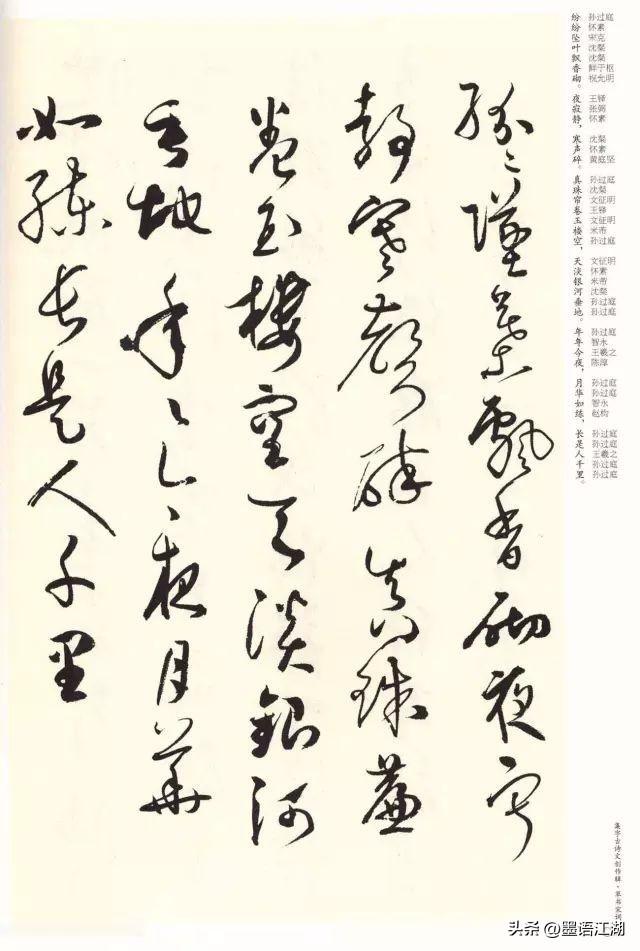 紛紛墜葉飄香砌夜寂
靜寒聲碎真珠簾
卷玉樓空天淡銀河
垂地年年今夜月華
如練長是人千里
纷 孙过庭
纷 怀素
坠 宋克
叶 沈粲
飘 沈粲
香 鲜于枢
砌 祝允明
。
夜 王铎
寂 张弼
静, 怀素
寒 沈粲
声 怀素
碎。 黄庭坚
真 孙过庭
珠 沈粲
帘 文征明
卷 王铎
玉 文征明
楼 米芾
空, 孙过庭
天 文征明
淡 怀素
银 米芾
河 沈粲
垂 孙过庭
地。 孙过庭
年 孙过庭
年 智永
今 王羲之
夜, 陈淳
月 孙过庭
华 孙过庭
如 智永
练, 赵构
长 孙过庭
是 孙过庭
人 王羲之
千 孙过庭
里。 孙过庭
集字古诗文创作辑·草书宋词
头条 @墨语江湖